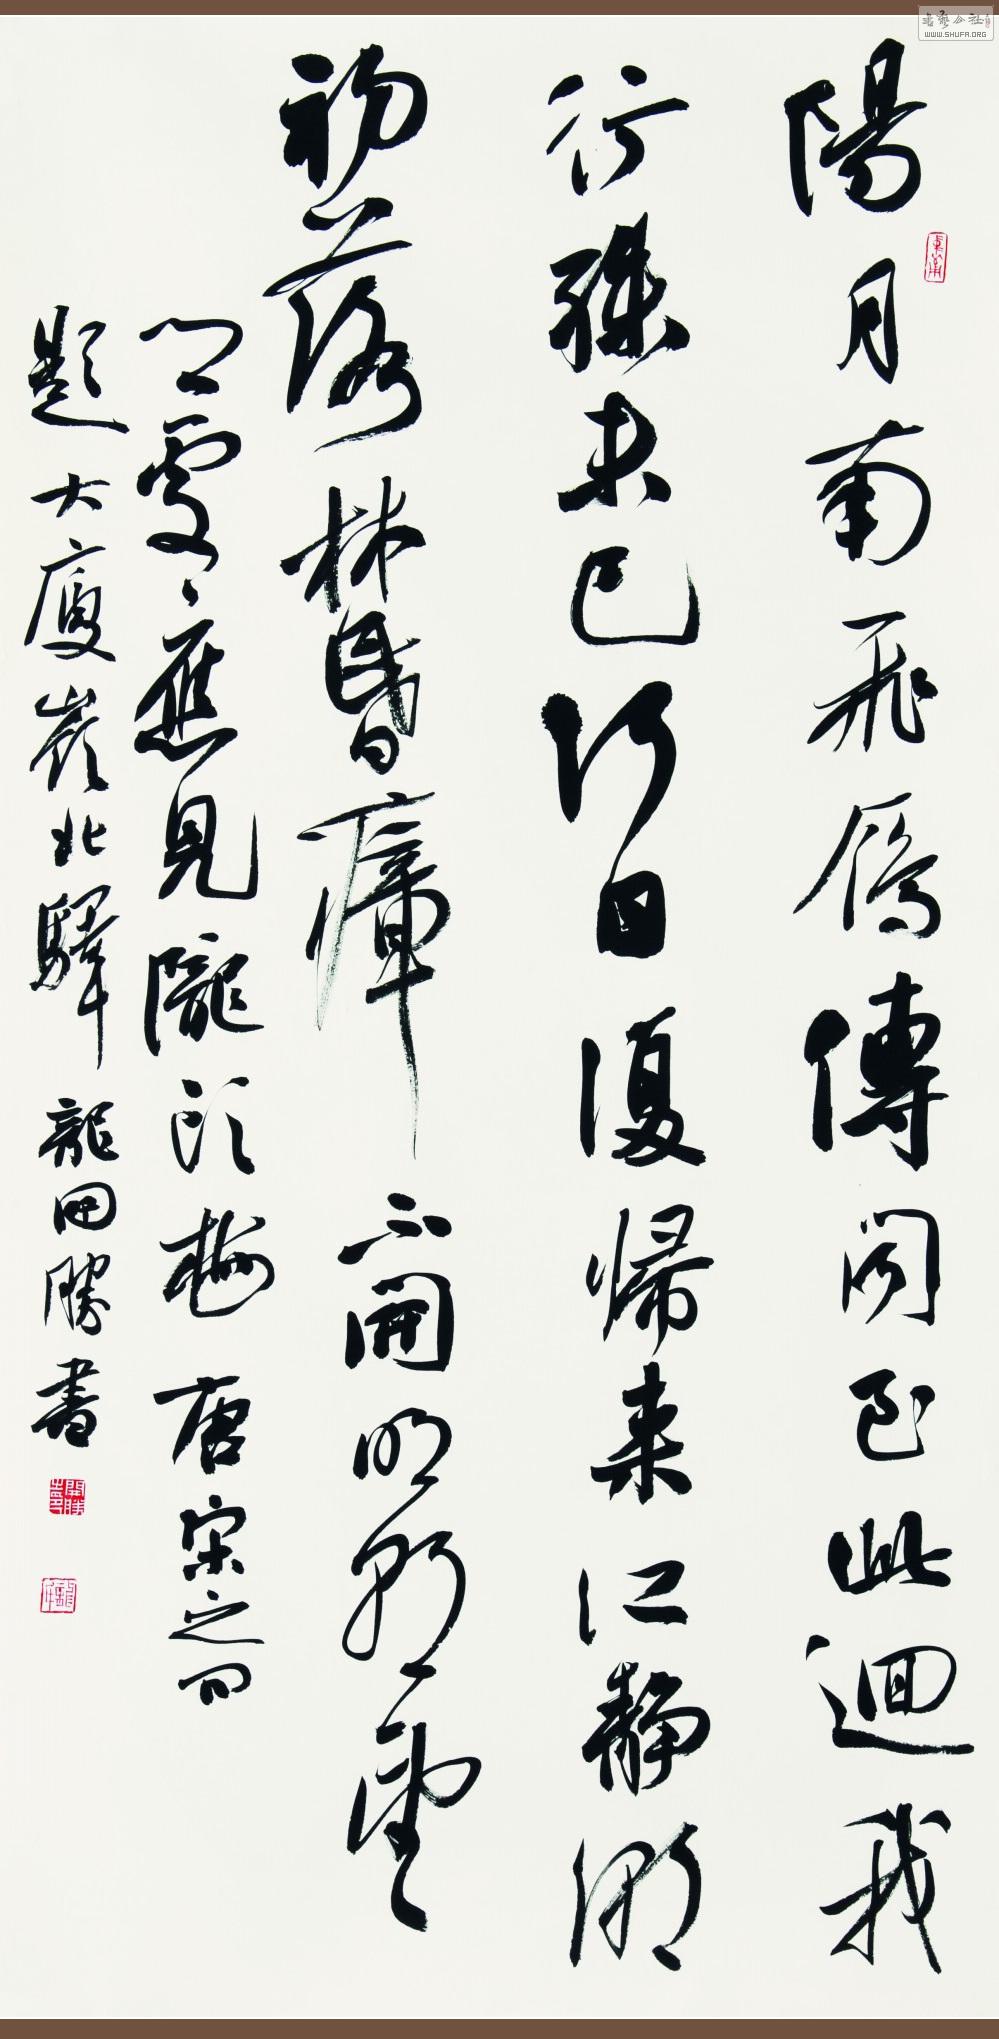 陽月南飛雁傳聞至此迴我
行殊未已何日復歸来江静潮
初落林昏瘴不開明朝望
鄉處々應見隴頭梅 唐 宋之問
題大庾嶺北驛 龍開勝書
開勝
書藝公社
WWW.SHUFA.ORG